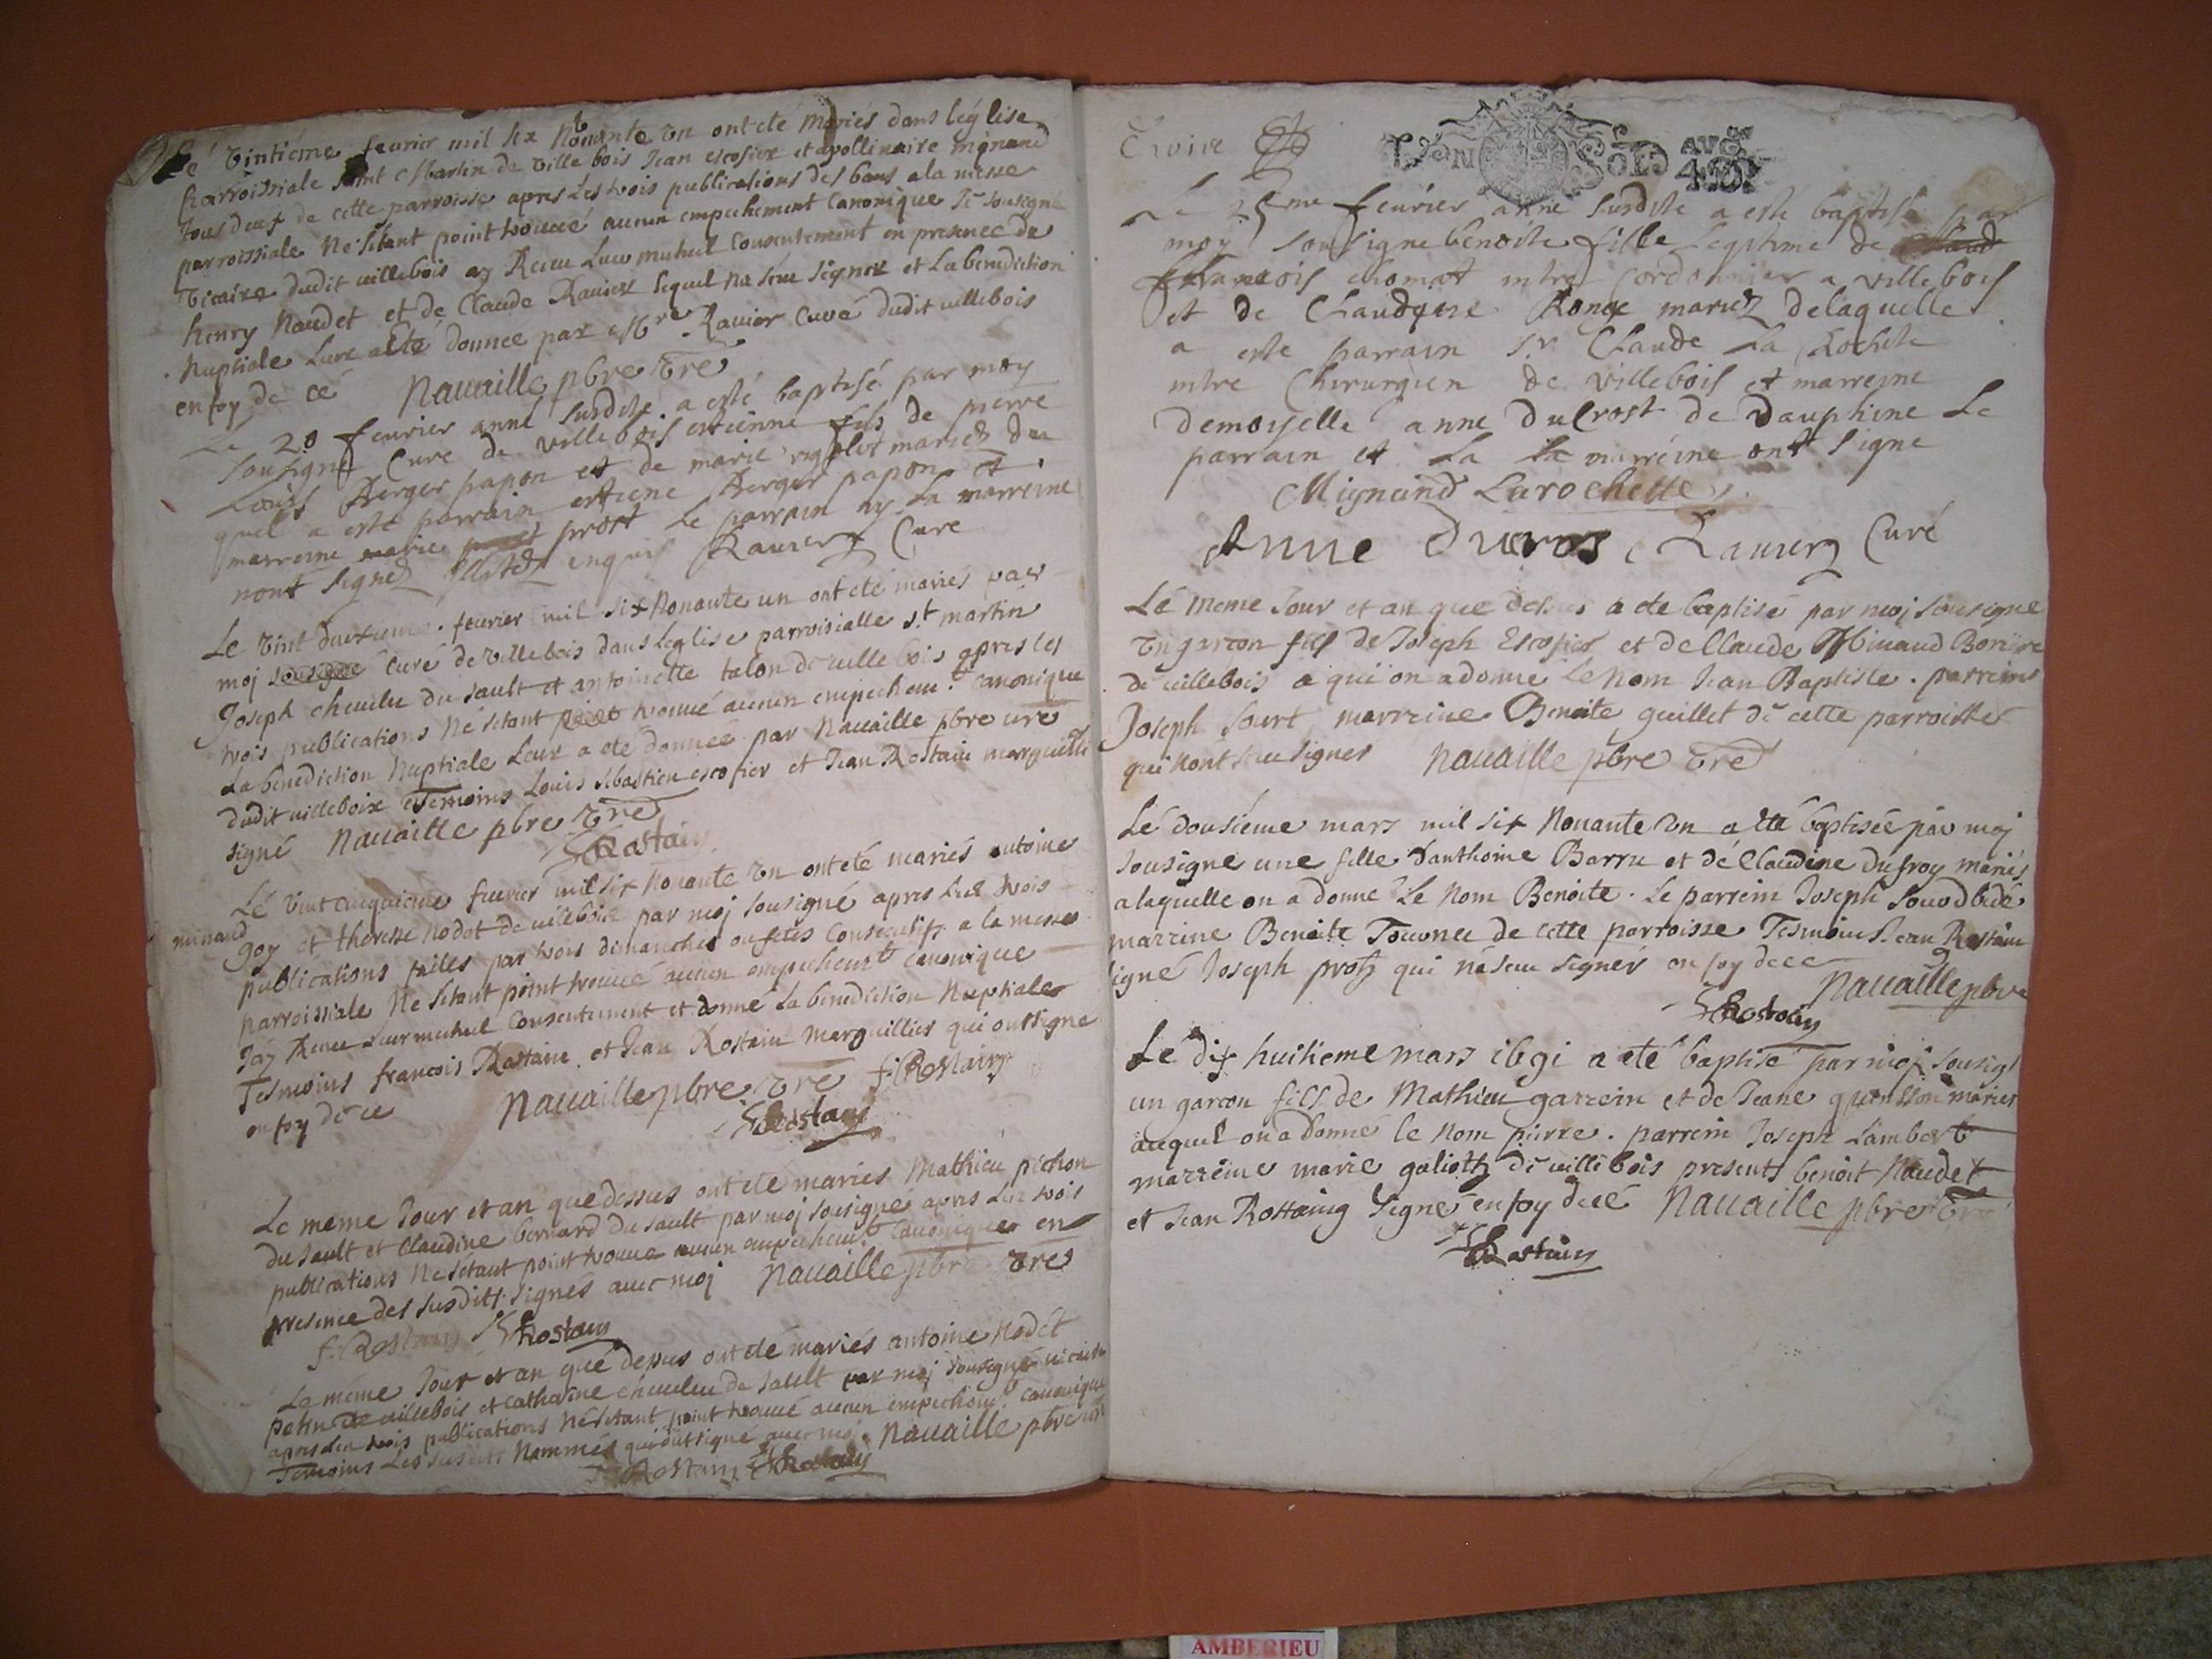 Le vintiéme feurier mil six Nonante vn ont eté mariés dans léglise
parroissiale saint Martin de ville bois Jean escofier et apollinaire minand
tous deux de cette parroisse apres les trois publications des bans a la messe
parroissiale Ne sétant point trouué aucun empechement Canonique Je sousigné
vicaire dudit uillebois ay Receu Leur mutuel Consentement en presence de
henry Naudet et de Claude Rauier lequel na sceu signer et La benediction
Nuptiale Leur a eté donnee par Mre Rauier Curé dudit uillebois
en foy de cé Nauaille pbre vre
Le 20 feurier anné susdite a esté baptisé par moy
sousigné Curé de villebois estienne fils de pierre
Louis Berger papon et de marie mariez du
quel a esté parrain estiene Berger papon et
marreine marie prost Le parrain ny La marreine
nont signez enquis Rauier Curé
Le vint deuxieme feurier mil six Nonante un ont eté mariés par
moj sousigné Curé de villebois dans Leglise parroisialle st martin
Joseph cheuelu du sault et antoinette talon de uille bois apres les
trois publications Né sétant point trouué aucun empechemt Canonique
La benediction Nuptiale Leur a eté donnée par Nauaille pbre vre
dudit uillebois temoins Louis sebastien escofier et Jean Rostain marguillier
signé Nauaille pbre vre
Rostain
Lé vint cinquieme feurier mil six Nonante vn ont eté mariés antoine
minand
goy et therese Nodet de uillebois par moj sousigné apres Les trois
publications faites par trois dimanches ou festes Consecutifs a la messe
parroissiale Ne sétant point trouué aucun empechemt Canonique
Jay Receu Leur mutuel Consentement et donné La benediction Nuptiale
Tesmoins francois Rostain et Jean Rostain Marguillier qui ont signe
en foy de ce Nauaille pbre vre f. Rostain
Rostain
Le meme Jour et an que dessus ont eté mariés Mathieu pichon
du sault et Claudine bernard du sault par moj sousigné apres Les trois
publications Ne sétant point trouué aucun empechemt Canonique en
presence des susdits signés auec moj Nauaille pbre vre
f. Rostain Rostain
Le méme Jour et an qué dessus ont eté mariés antoine Nodét
petin de uillebois et Catherine cheuelu de sault par moj sousigné uicaire
apres Les trois publications Né sétant point trouué aucun empechemt Canonique
Temoins Les susdits Nommés qui ont signé auec moj Nauaille pbre vre
Rostain Rostain
Troise
VN SOLD
Le 25me feurier anné susdite a esté baptisé par
moy sousigné benoite fille legitime de Claude
francois chomat mtre Cordonnier a villebois
et de Claudine Ronge mariez delaquelle
a esté parrain sr Claude La Rochete
mtre Chirurgien de villebois et marreine
demoyselle anne duCrost de dauphine Le
parrain et La la marréine ont signe
Mignand Larochette
Anne ducros Rauier Curé
Lé meme Jour et an que dessus a eté baptisé par moj sousigné
vn garcon fils de Joseph Escofier et de Claude Minaud
de uillebois a qui on a donné Le Nom Jean Baptiste . parrein
Joseph sourt marreine Benoite guillet dé cette parroisse
qui nont sceu signer Nauaille pbre vre
Lé dousiéme mars mil six Nonante vn a eté baptisée par moj
sousigné une fille danthoine Barru et dé Claudine dufroy mariés
a laquelle on a donné Le Nom Benoite . Le parrein Joseph
marreine Benoite Tournee de cette parroisse Tesmoins Jean Rostain
signé Joseph prost qui na sceu signer en foy de ce
Rostain Nauaille pbre
Lé dix huitieme mars 1691 a eté baptisé par moj sousigé
un garcon fils de Mathieu garrein et de Jeane mariés
auquel on a donné le Nom pierre . parrein Joseph Lambert
marreine marie de uillebois presents benoit Naudet
et Jean Rostaing signé en foy de cé Nauaille pbre vre
Rostain
AMBERIEU